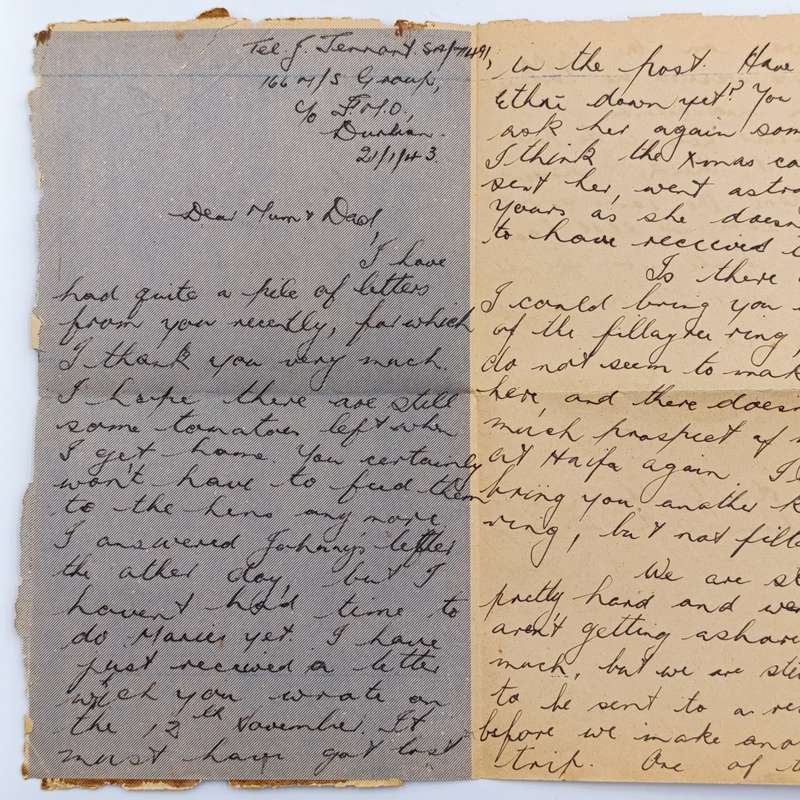 Tel J. Tennant SA/7491,
166 M/S Group,
c/o F.M.O,
Durban.
21/1/43.
Dear Mum & Dad,
I have
had quite a pile of letters
from you recently, for which
I thank you very much.
I hope there are still
some tomatoes left when
I get home. You certainly
won't have to feed them
to the hens any more.
I answered Johnny's letter
the other day, but I
haven't had time to
do Maries yet. I have
just received a letter
which you wrote on
the 12th November. It
must have got lost
in the post. Have
down yet? You
ask her again som
I think the Xmas ca
sent her, went astra
yours as she doesn
to have received
Is there
I could bring you
of the fillagree ring,
do not seem to mak
here, and there doesn
much prospect of
at Haifa again. I
bring you another k
ring, but not filla
We are st
pretty hard and we
aren't getting ashor
much, but we are
to be sent to a res
before we make ano
trip. One of t